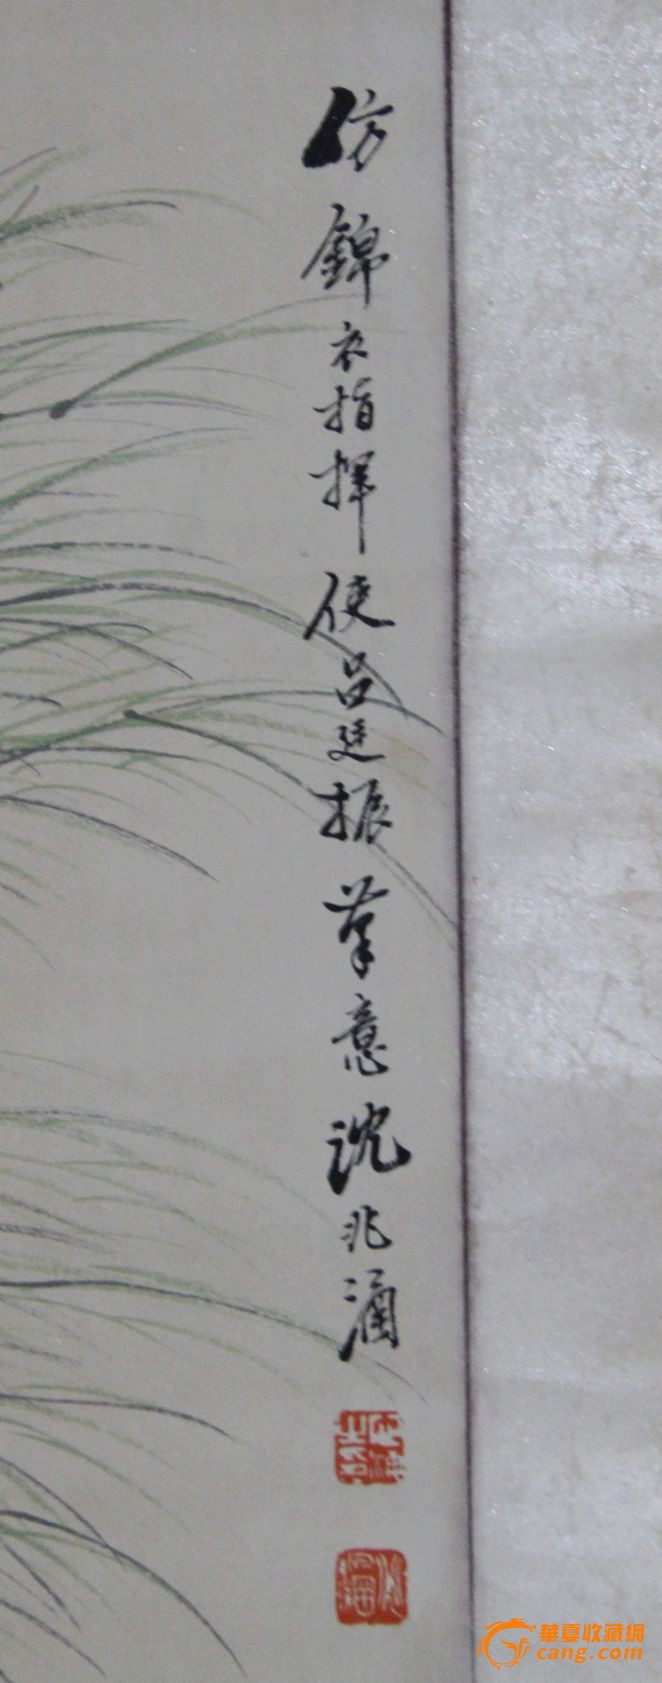 仿錦衣指揮使呂廷振筆意沈兆涵
華夏收藏網
cang.com